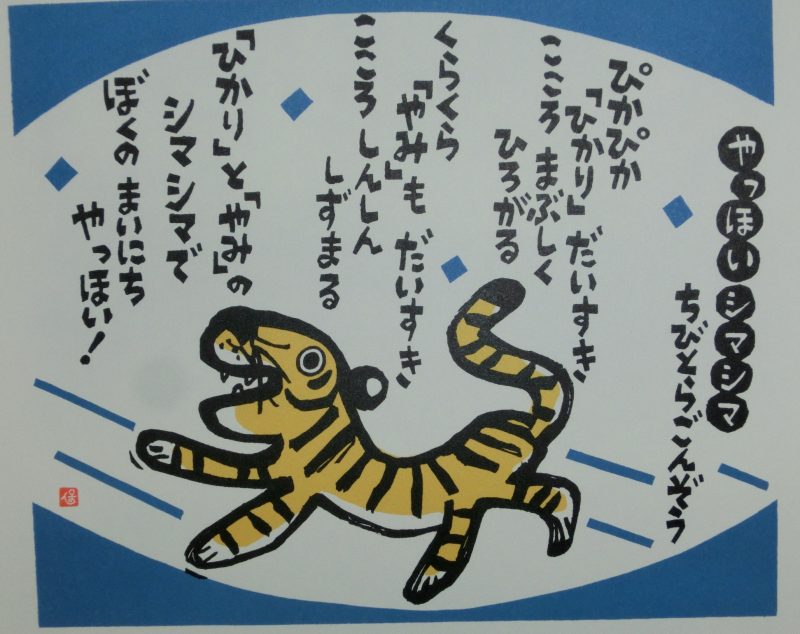 やっほいシマシマ
ちびとらごんぞう
ぴかぴか
「ひかり」だいすき
こころ まぶしく
ひろがる
くらくら
「やみ」も だいすき
こころ しんしん
しずまる
「ひかり」と「やみ」の
シマシマで
ぼくの まいにち
やっほい!